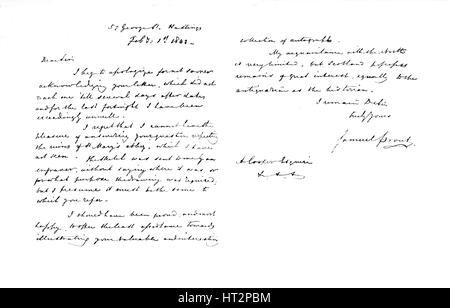 57 George St. Hastings
Feby. 1st 1842
Dear Sir
I beg to apologize for not sooner
acknowledging your letter, which did not
reach me till several days after date,
and for the last fortnight I have been
exceedingly unwell.
I regret that I cannot have the
pleasure of answering your question respecting
the ruins of St. Mary's abbey, which I have
not seen. The sketch was sent to me by an
engraver, without saying where it was, or
for what purpose the drawing was required,
but I presume it must be the same to
which you refer.
I should have been proud, and most
happy, to offer the least assistance towards
illustrating your valuable and interesting
collection of autographs.
My acquaintance with the North
is very limited, but Scotland possesses
remains of great interest, equally to the
antiquarian as the historian.
I remain Dr Sir
truly yours
Samuel Prout
Esquire
alamy
Image ID: HT2PBM
www.alamy.com